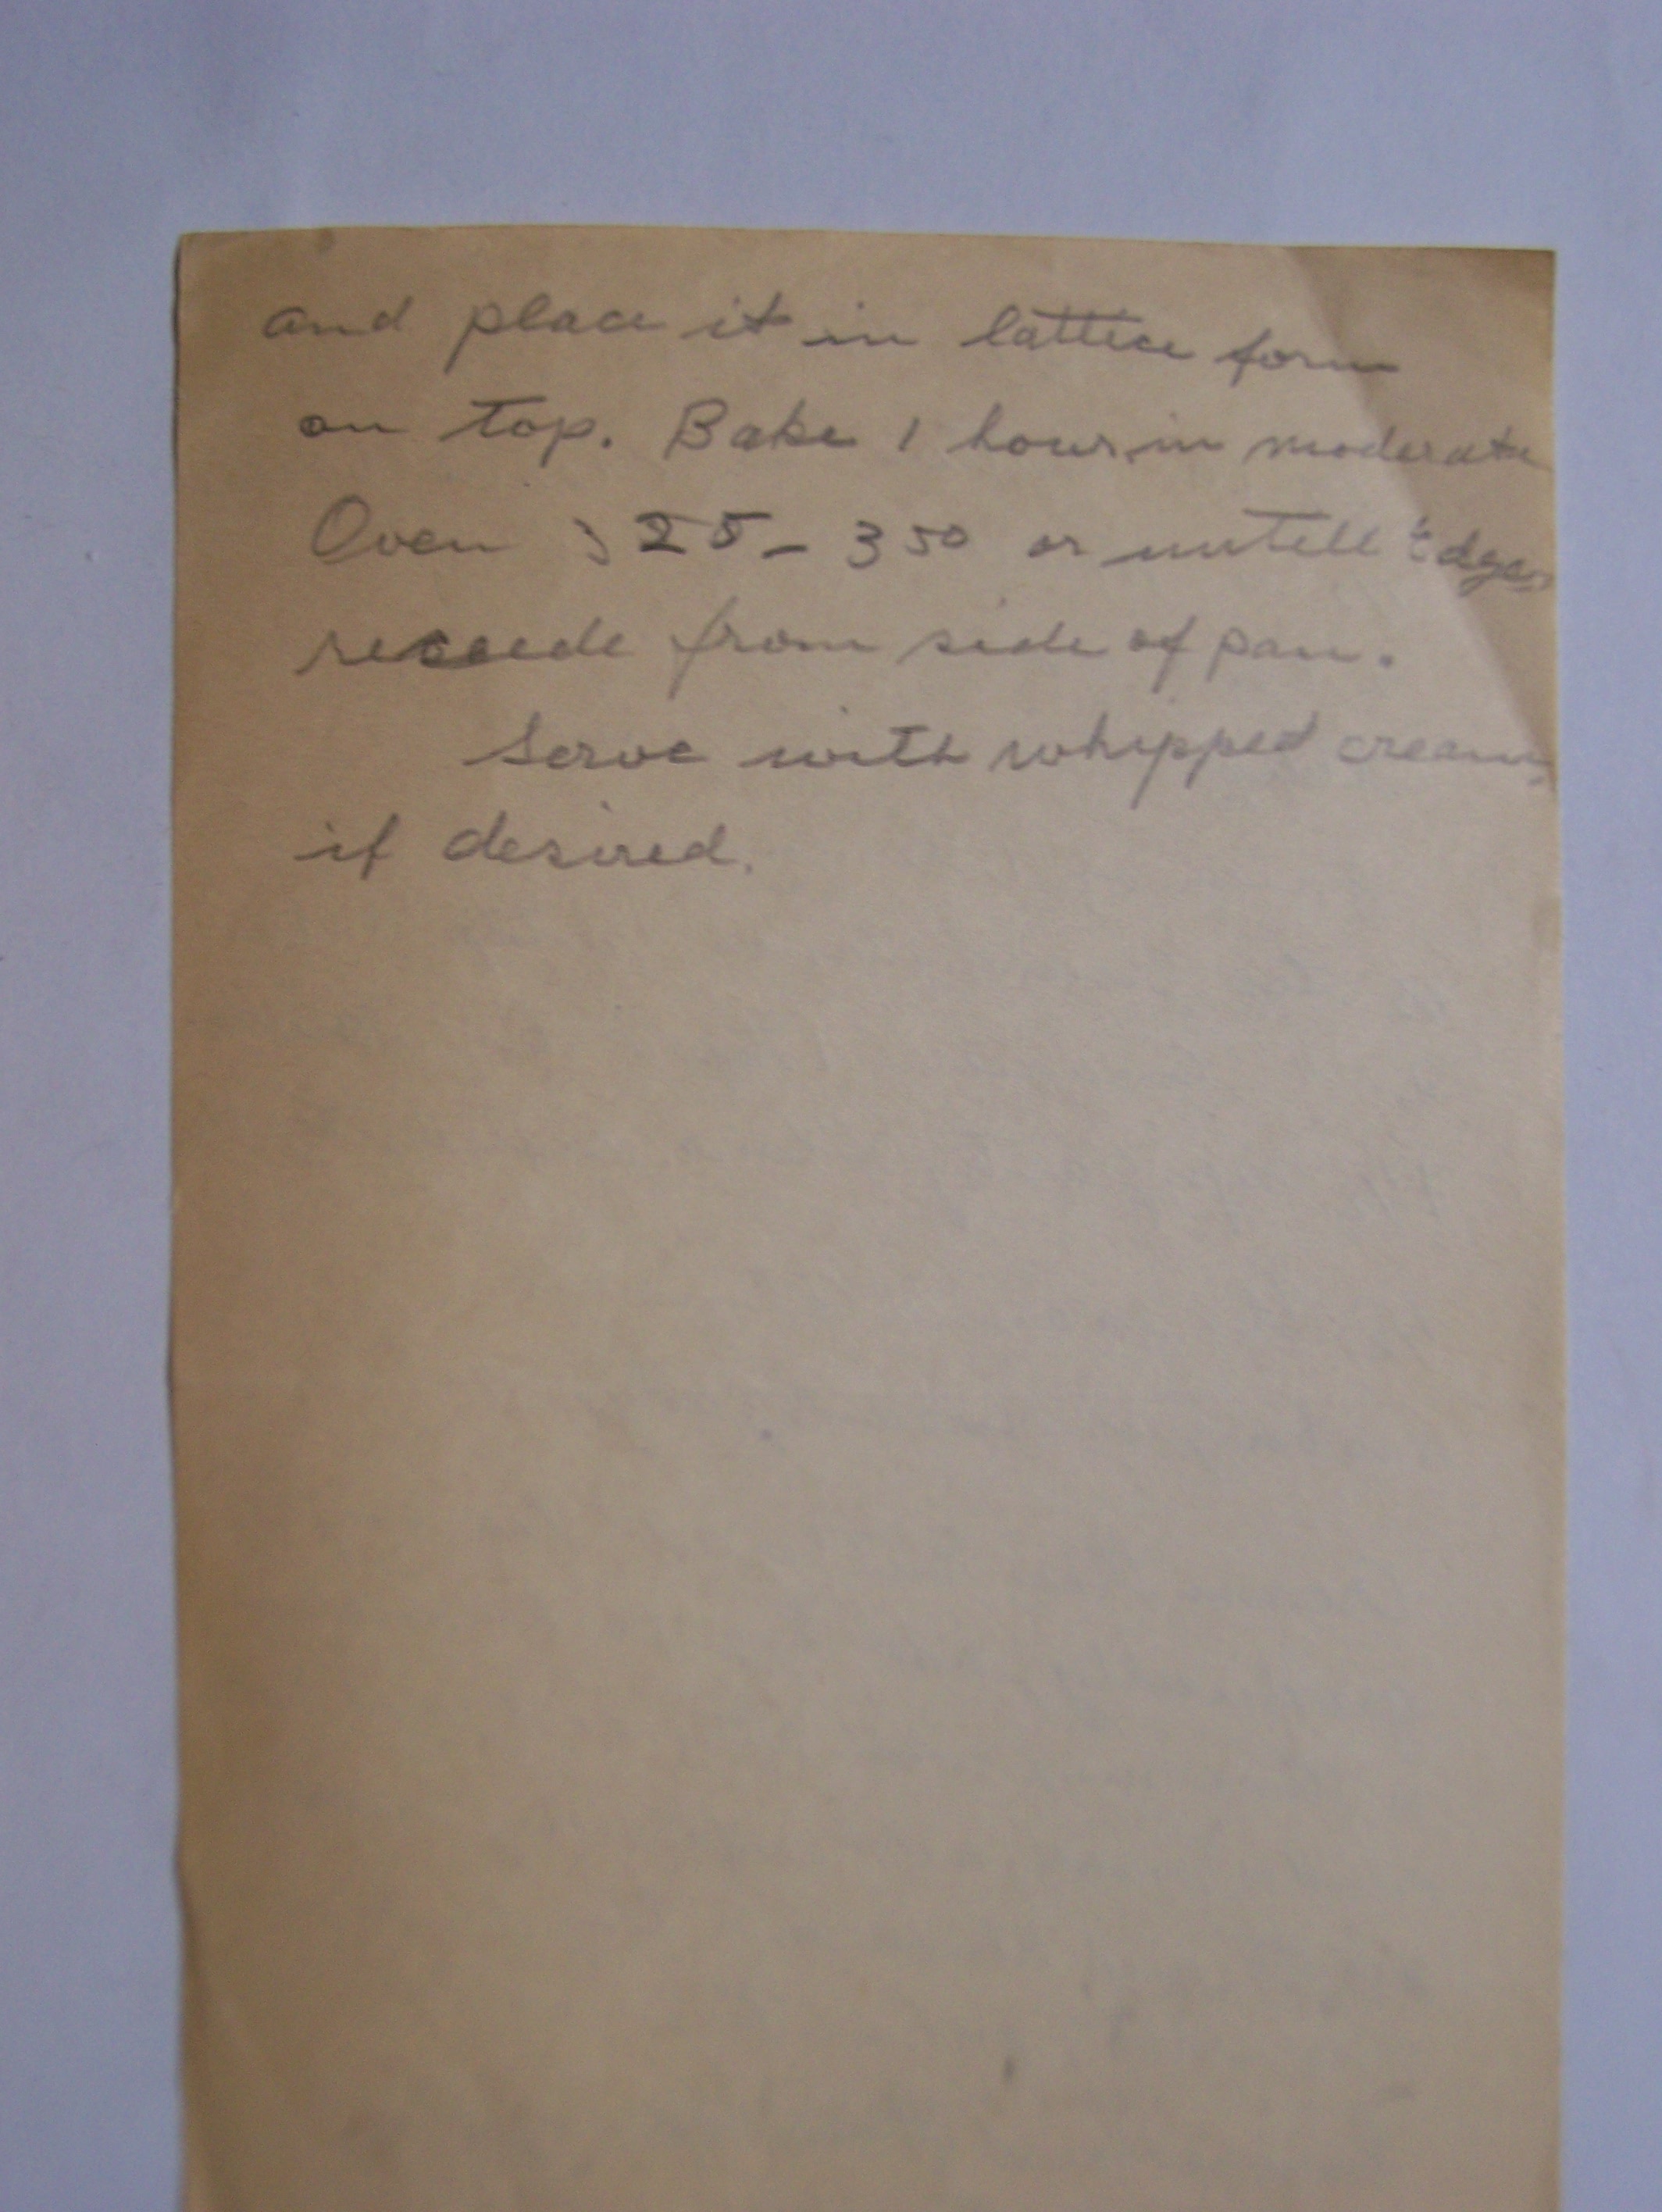 and place it in lattice form
on top. Bake 1 hour in moderate
Oven 325 - 350 or untill Edges
receede from side of pan.
Serve with whipped cream,
if desired.